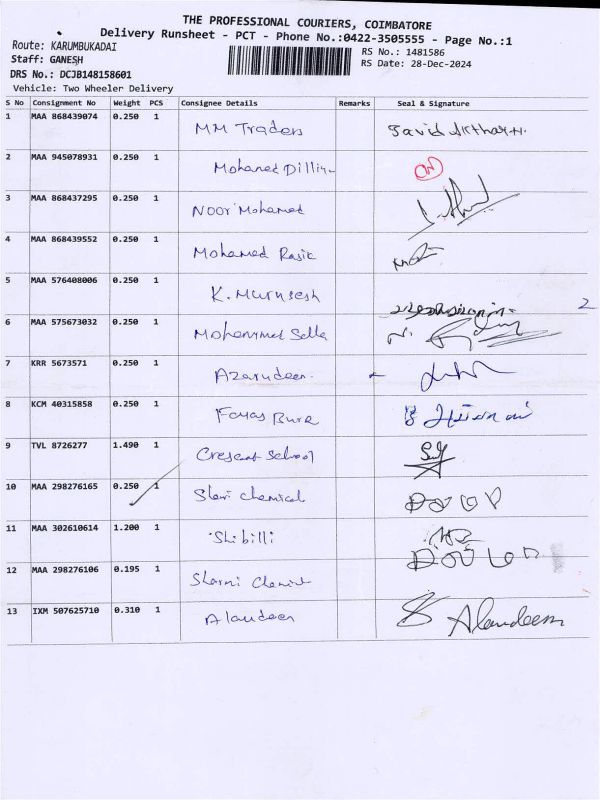 THE PROFESSIONAL COURIERS, COIMBATORE
Delivery Runsheet - PCT - Phone No.:0422-3505555 - Page No.:1
Route: KARUMBUKADAI
RS No.: 1481586
Staff: GANESH
RS Date: 28-Dec-2024
DRS No.: DCJB148158601
Vehicle: Two Wheeler Delivery
S No Consignment No Weight PCS Consignee Details Remarks Seal & Signature
1 MAA 868439074 0.250 1 MM Traders
2 MAA 945078931 0.250 1 Mohamed
3 MAA 868437295 0.250 1 Noor Mohamed
4 MAA 868439552 0.250 1 Mohamed Rasik
5 MAA 576408006 0.250 1 K. Murugesh
6 MAA 575673032 0.250 1 Mohammed
7 KRR 5673571 0.250 1 Azarudeen
8 KCM 40315858 0.250 1
9 TVL 8726277 1.490 1 Crescent School
10 MAA 298276165 0.250 1 Chemical
11 MAA 302610614 1.200 1 Shibilli
12 MAA 298276106 0.195 1
13 IXM 507625710 0.310 1 Alaudeen Alaudeen